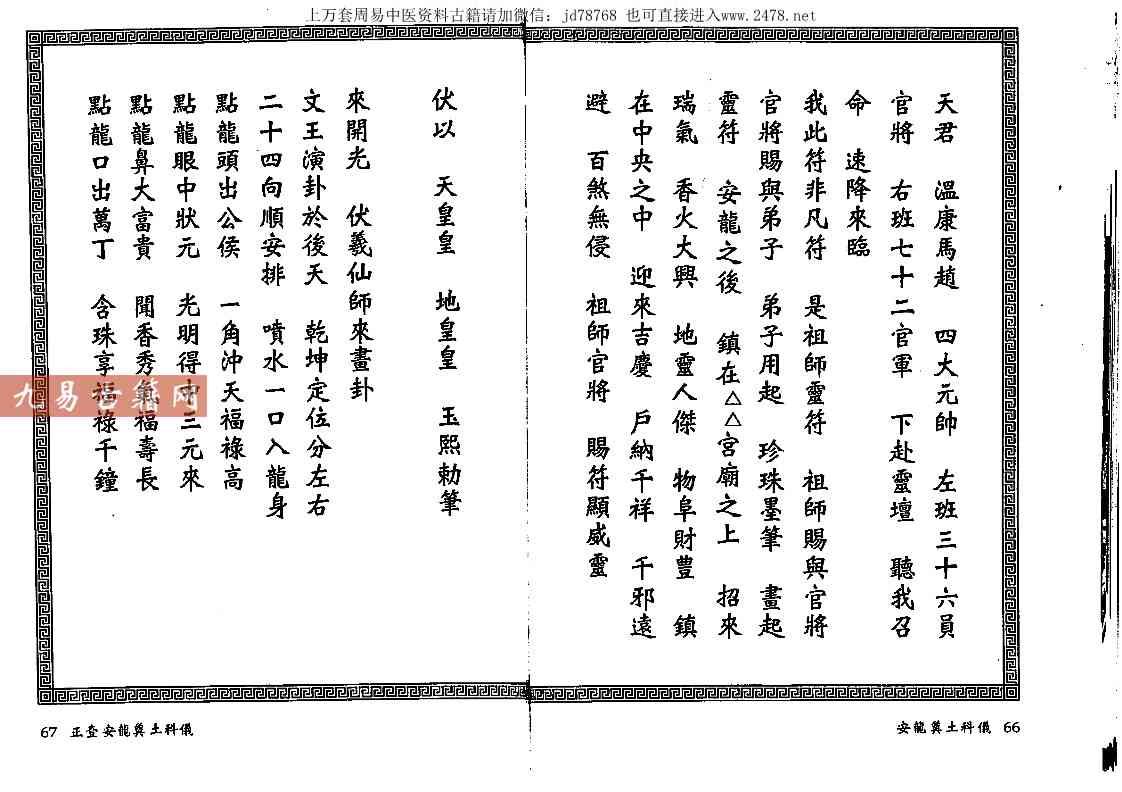 上万套周易中医资料古籍请加微信：jd78768 也可直接进入www.2478.net
天君 溫康馬趙 四大元帥 左班三十六員
官將 右班七十二官軍 下赴靈壇 聽我召
命 速降來臨
我此符非凡符 是祖師靈符 祖師賜與官將
官將賜與弟子 弟子用起 珍珠墨筆 畫起
靈符 安龍之後 鎮在△△宮廟之上 招來
瑞氣 香火大興 地靈人傑 物阜財豊 鎮
在中央之中 迎來吉慶 戶納千祥 千邪遠
避 百煞無侵 祖師官將 賜符顯威靈
安龍奠土科儀 66
伏以 天皇皇 地皇皇 玉熙勅筆
來開光 伏羲仙師來畫卦
文王演卦於後天 乾坤定位分左右
二十四向順安排 噴水一口入龍身
點龍頭出公侯 一角沖天福祿高
點龍眼中狀元 光明得中三元來
點龍鼻大富貴 聞香秀氣福壽長
點龍口出萬丁 含珠享福祿千鐘
67 正查安龍奠土科儀
九易古籍网